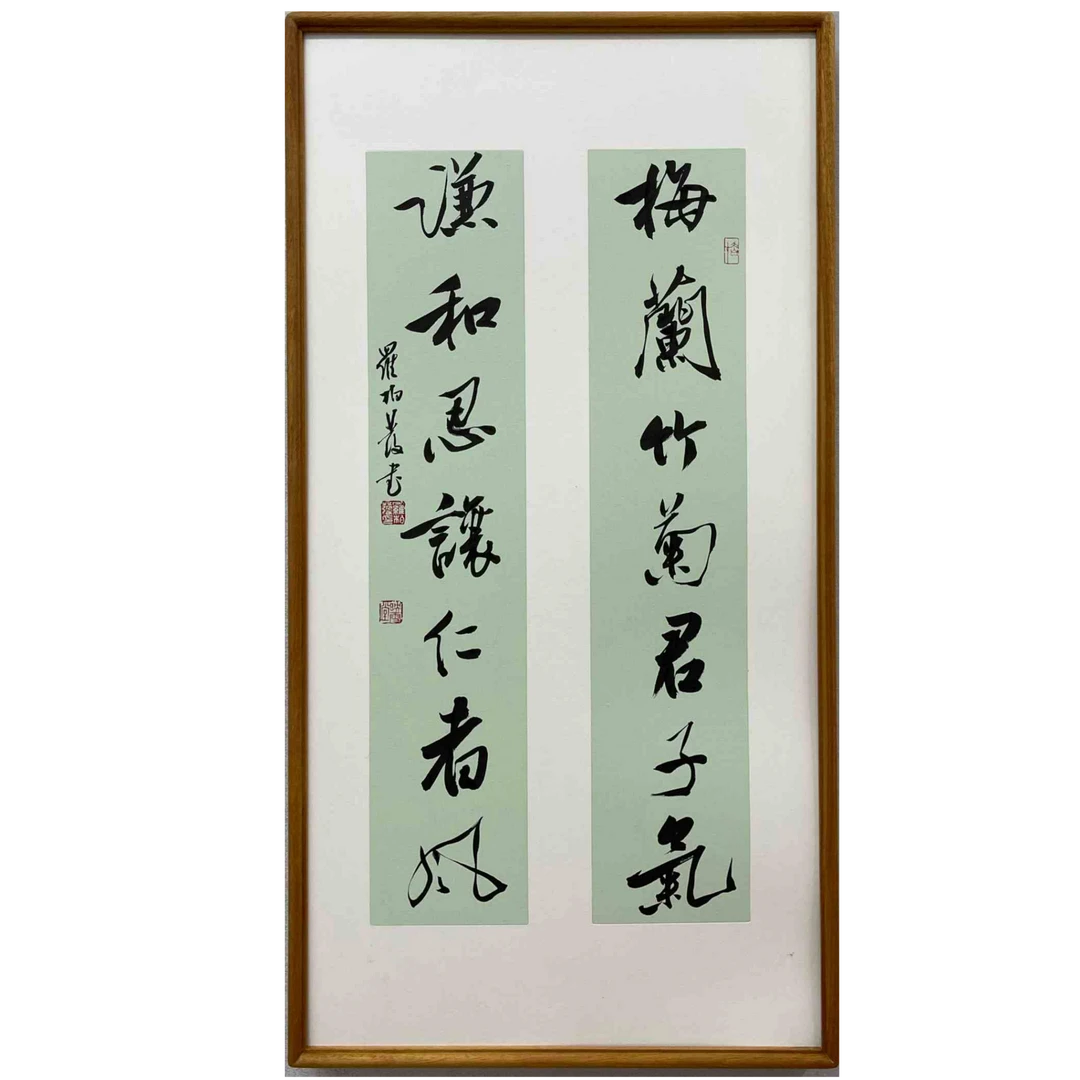 梅蘭竹菊君子氣
謙和忍讓仁者風
羅柏書